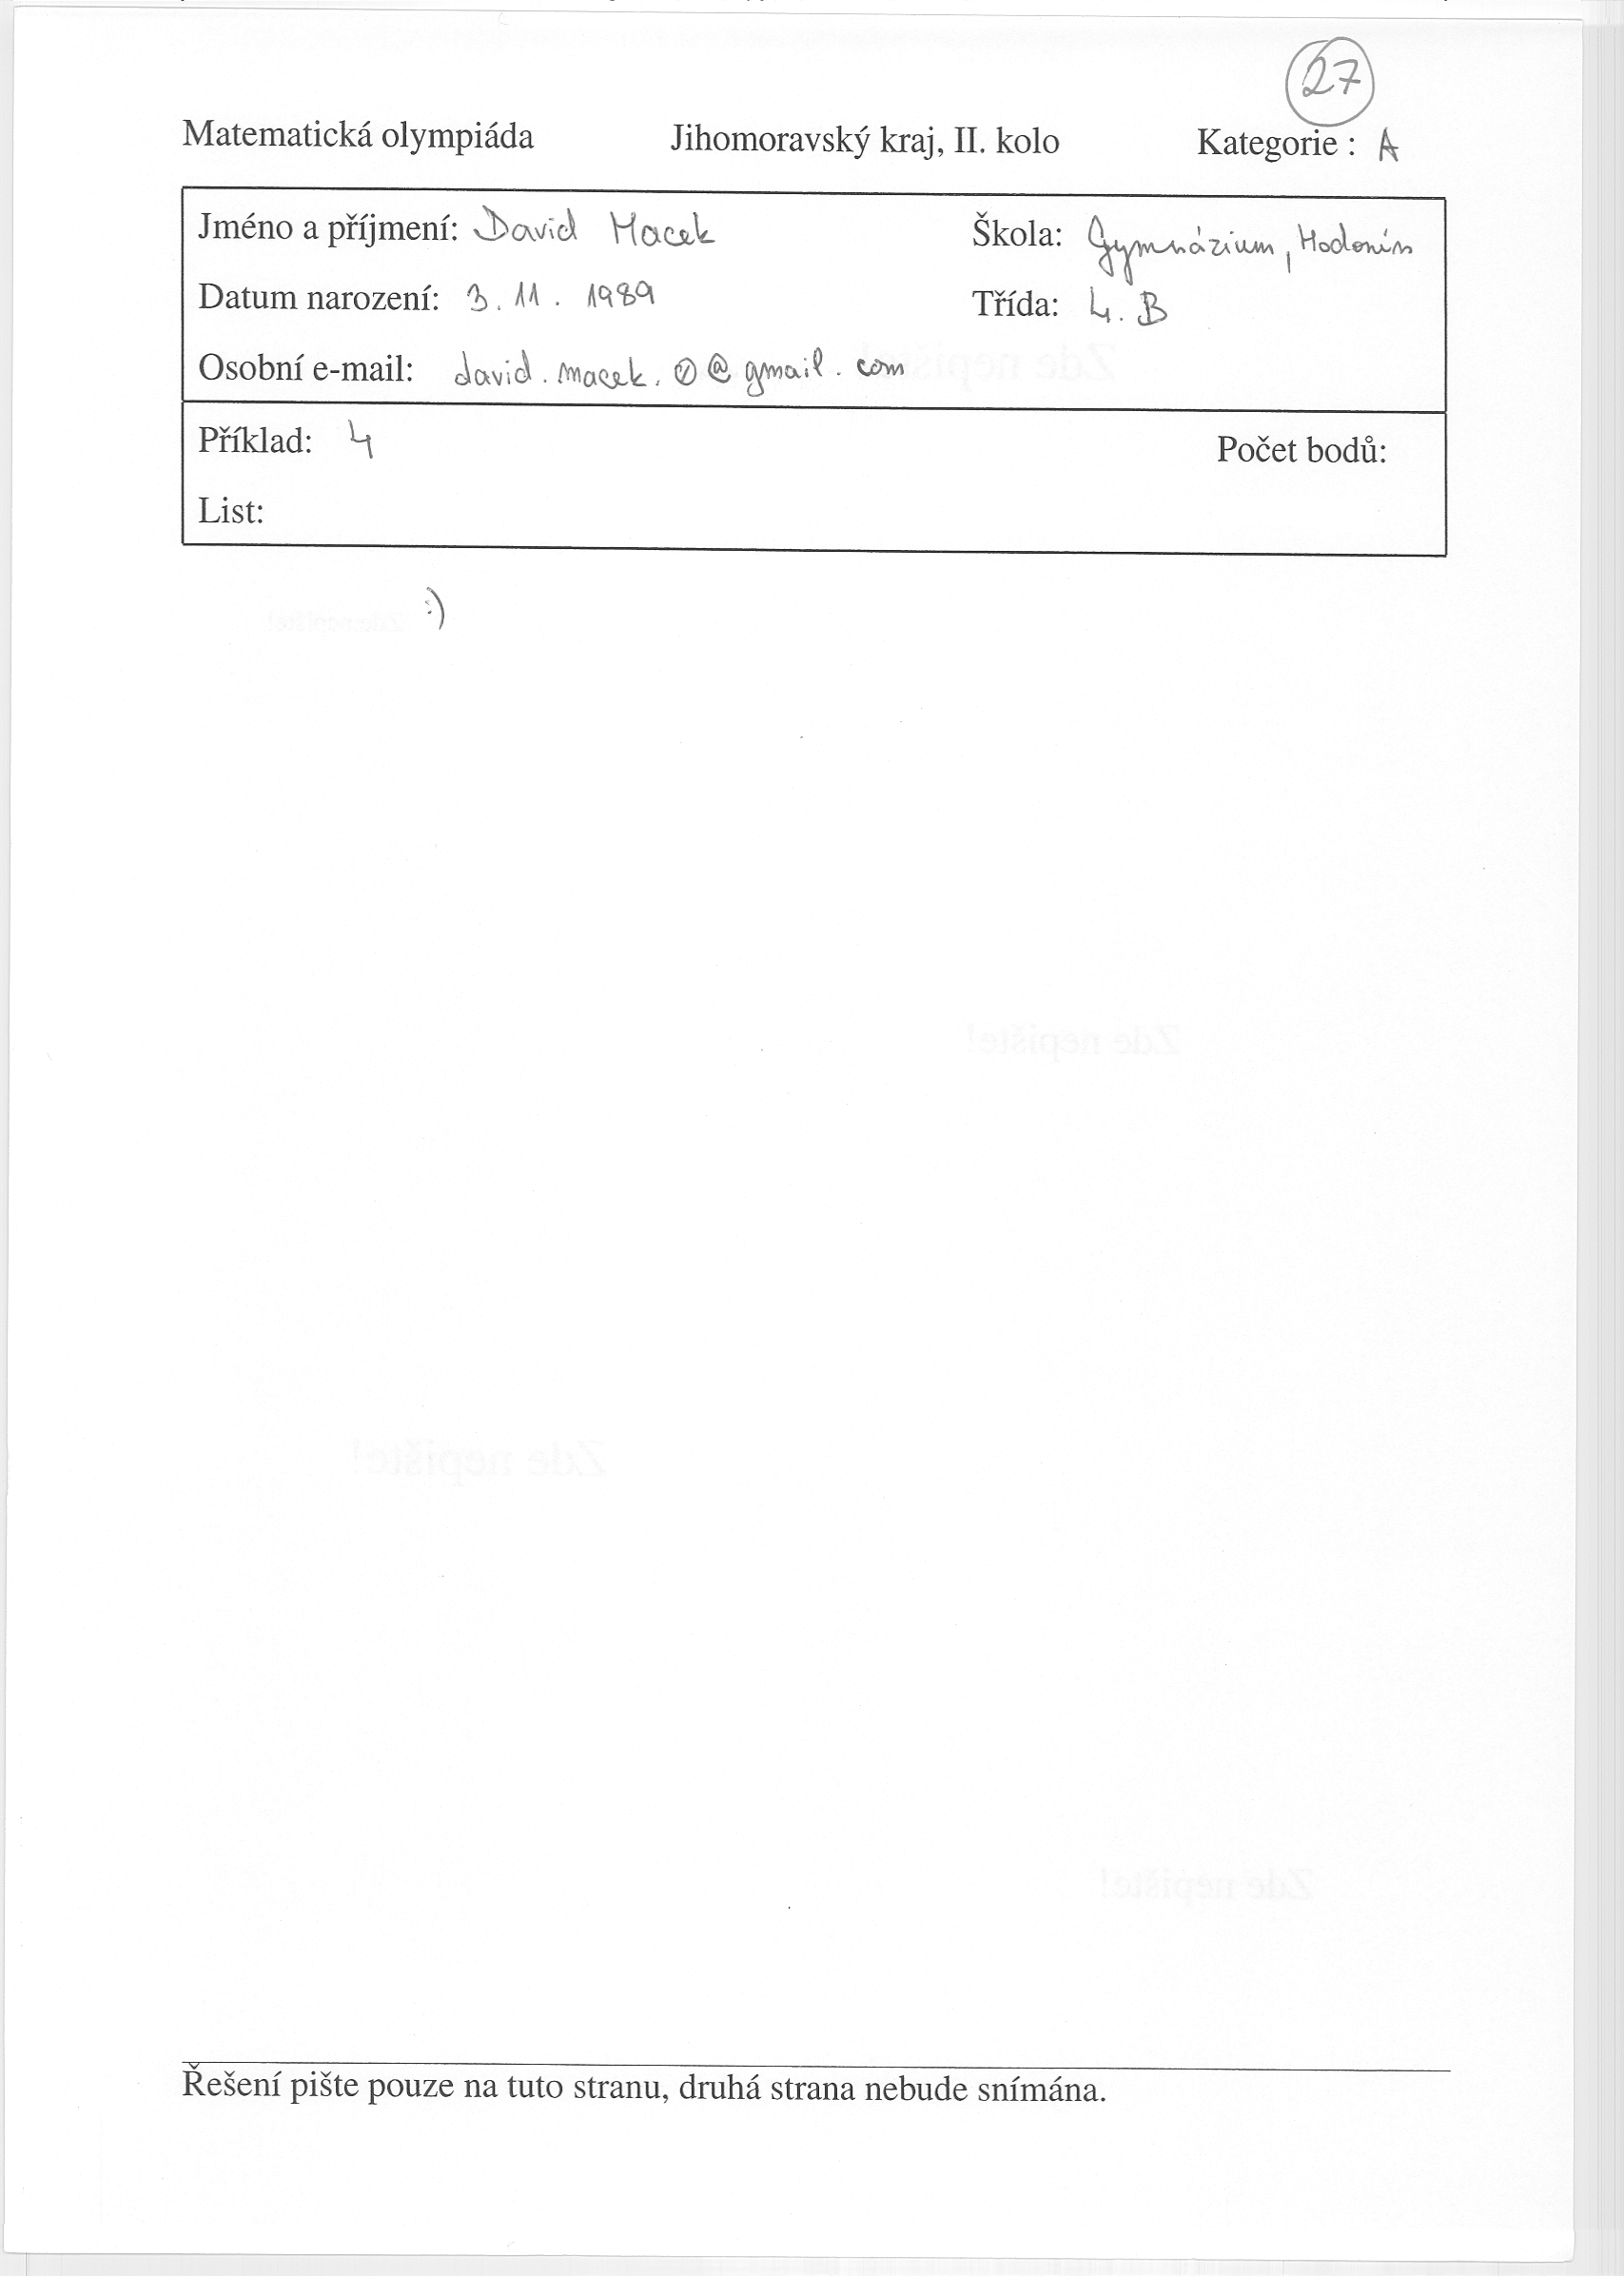 27
Matematická olympiáda Jihomoravský kraj, II. kolo Kategorie : A
Jméno a příjmení: David Macek Škola: Gymnázium, Hodonín
Datum narození: 3. 11. 1989 Třída: 4. B
Osobní e-mail: david.macek.0@gmail.com
Zde nepište!
Příklad: 4 Počet bodů:
List:
:)
Zde nepište!
Zde nepište!
Zde nepište!
Zde nepište!
Řešení pište pouze na tuto stranu, druhá strana nebude snímána.